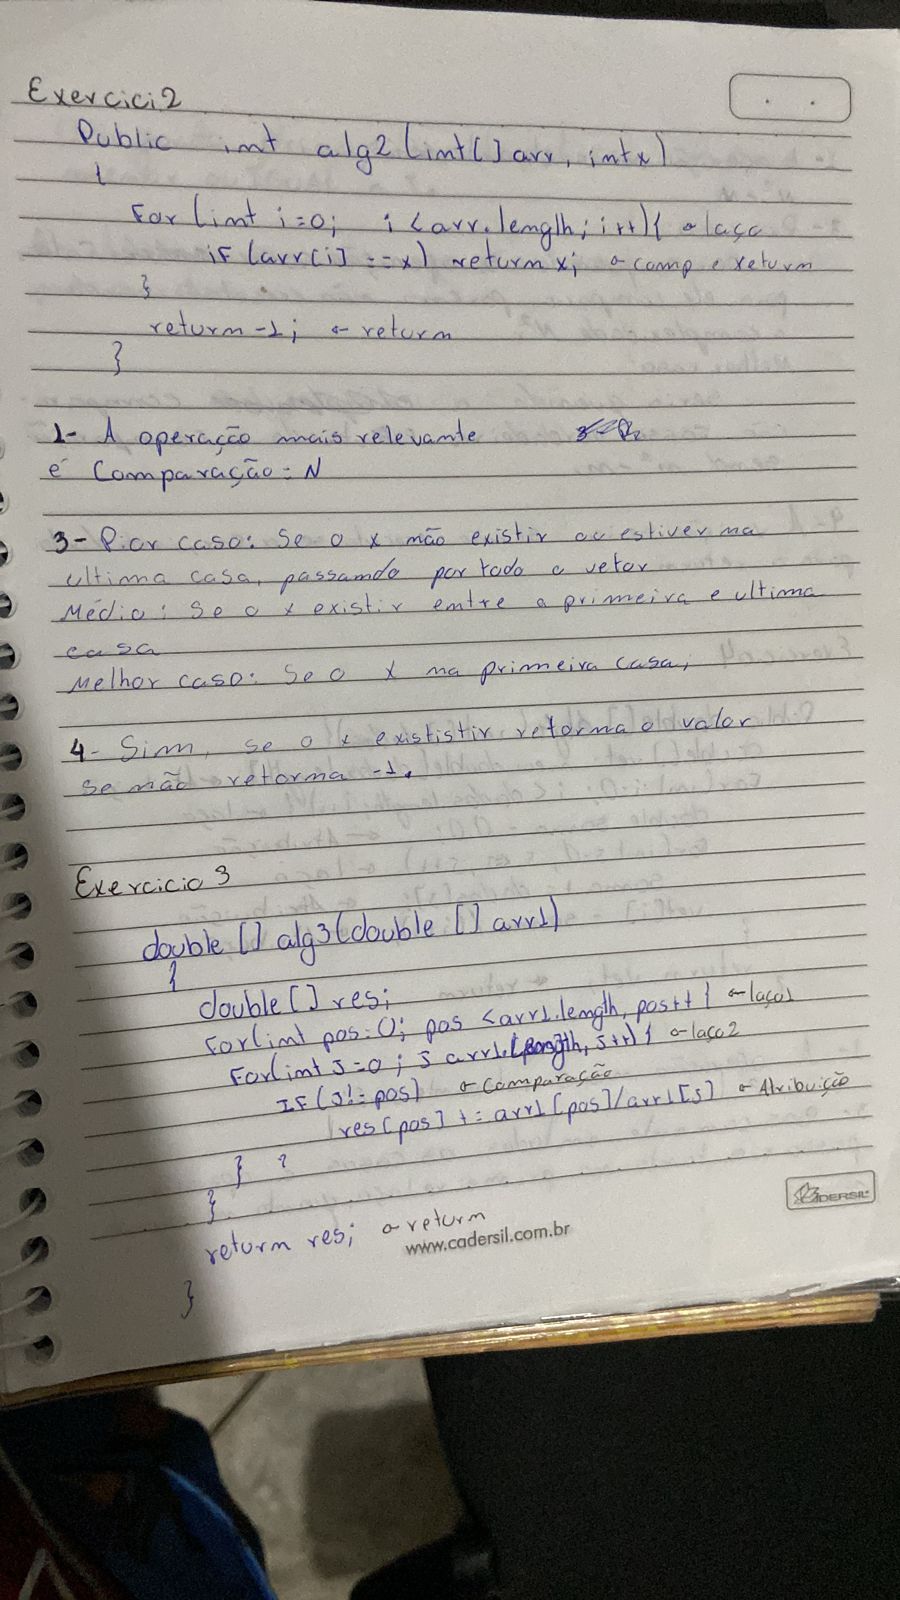 Exercici2
Public int alg2(int[] arr, int x)
{
For(int i=0; i<arr.length; i++){ ← laço
iF (arr[i] ==x) return x; ← comp e return
}
return -1; ← return
}
1- A operação mais relevante
é Comparação: N
3- Pior caso: Se o x não existir ou estiver na
ultima casa, passando por todo o vetor
Médio: Se o x existir entre a primeira e ultima
casa
Melhor caso: Se o x na primeira casa;
4- Sim, se o x exististir retorna o valor
se não retorna -1.
Exercicio 3
double [] alg3(double [] arr1)
{
double[] res;
For(int pos=0; pos <arr1.length, pos++ { ← laço1
For(int J=0; J arr1.length, J++) { ← laço2
IF(J!=pos) ← Comparação
res[pos] += arr1[pos]/arr1[J] ← Atribuição
} }
}
return res; ← return
}
CADERSIL
www.cadersil.com.br